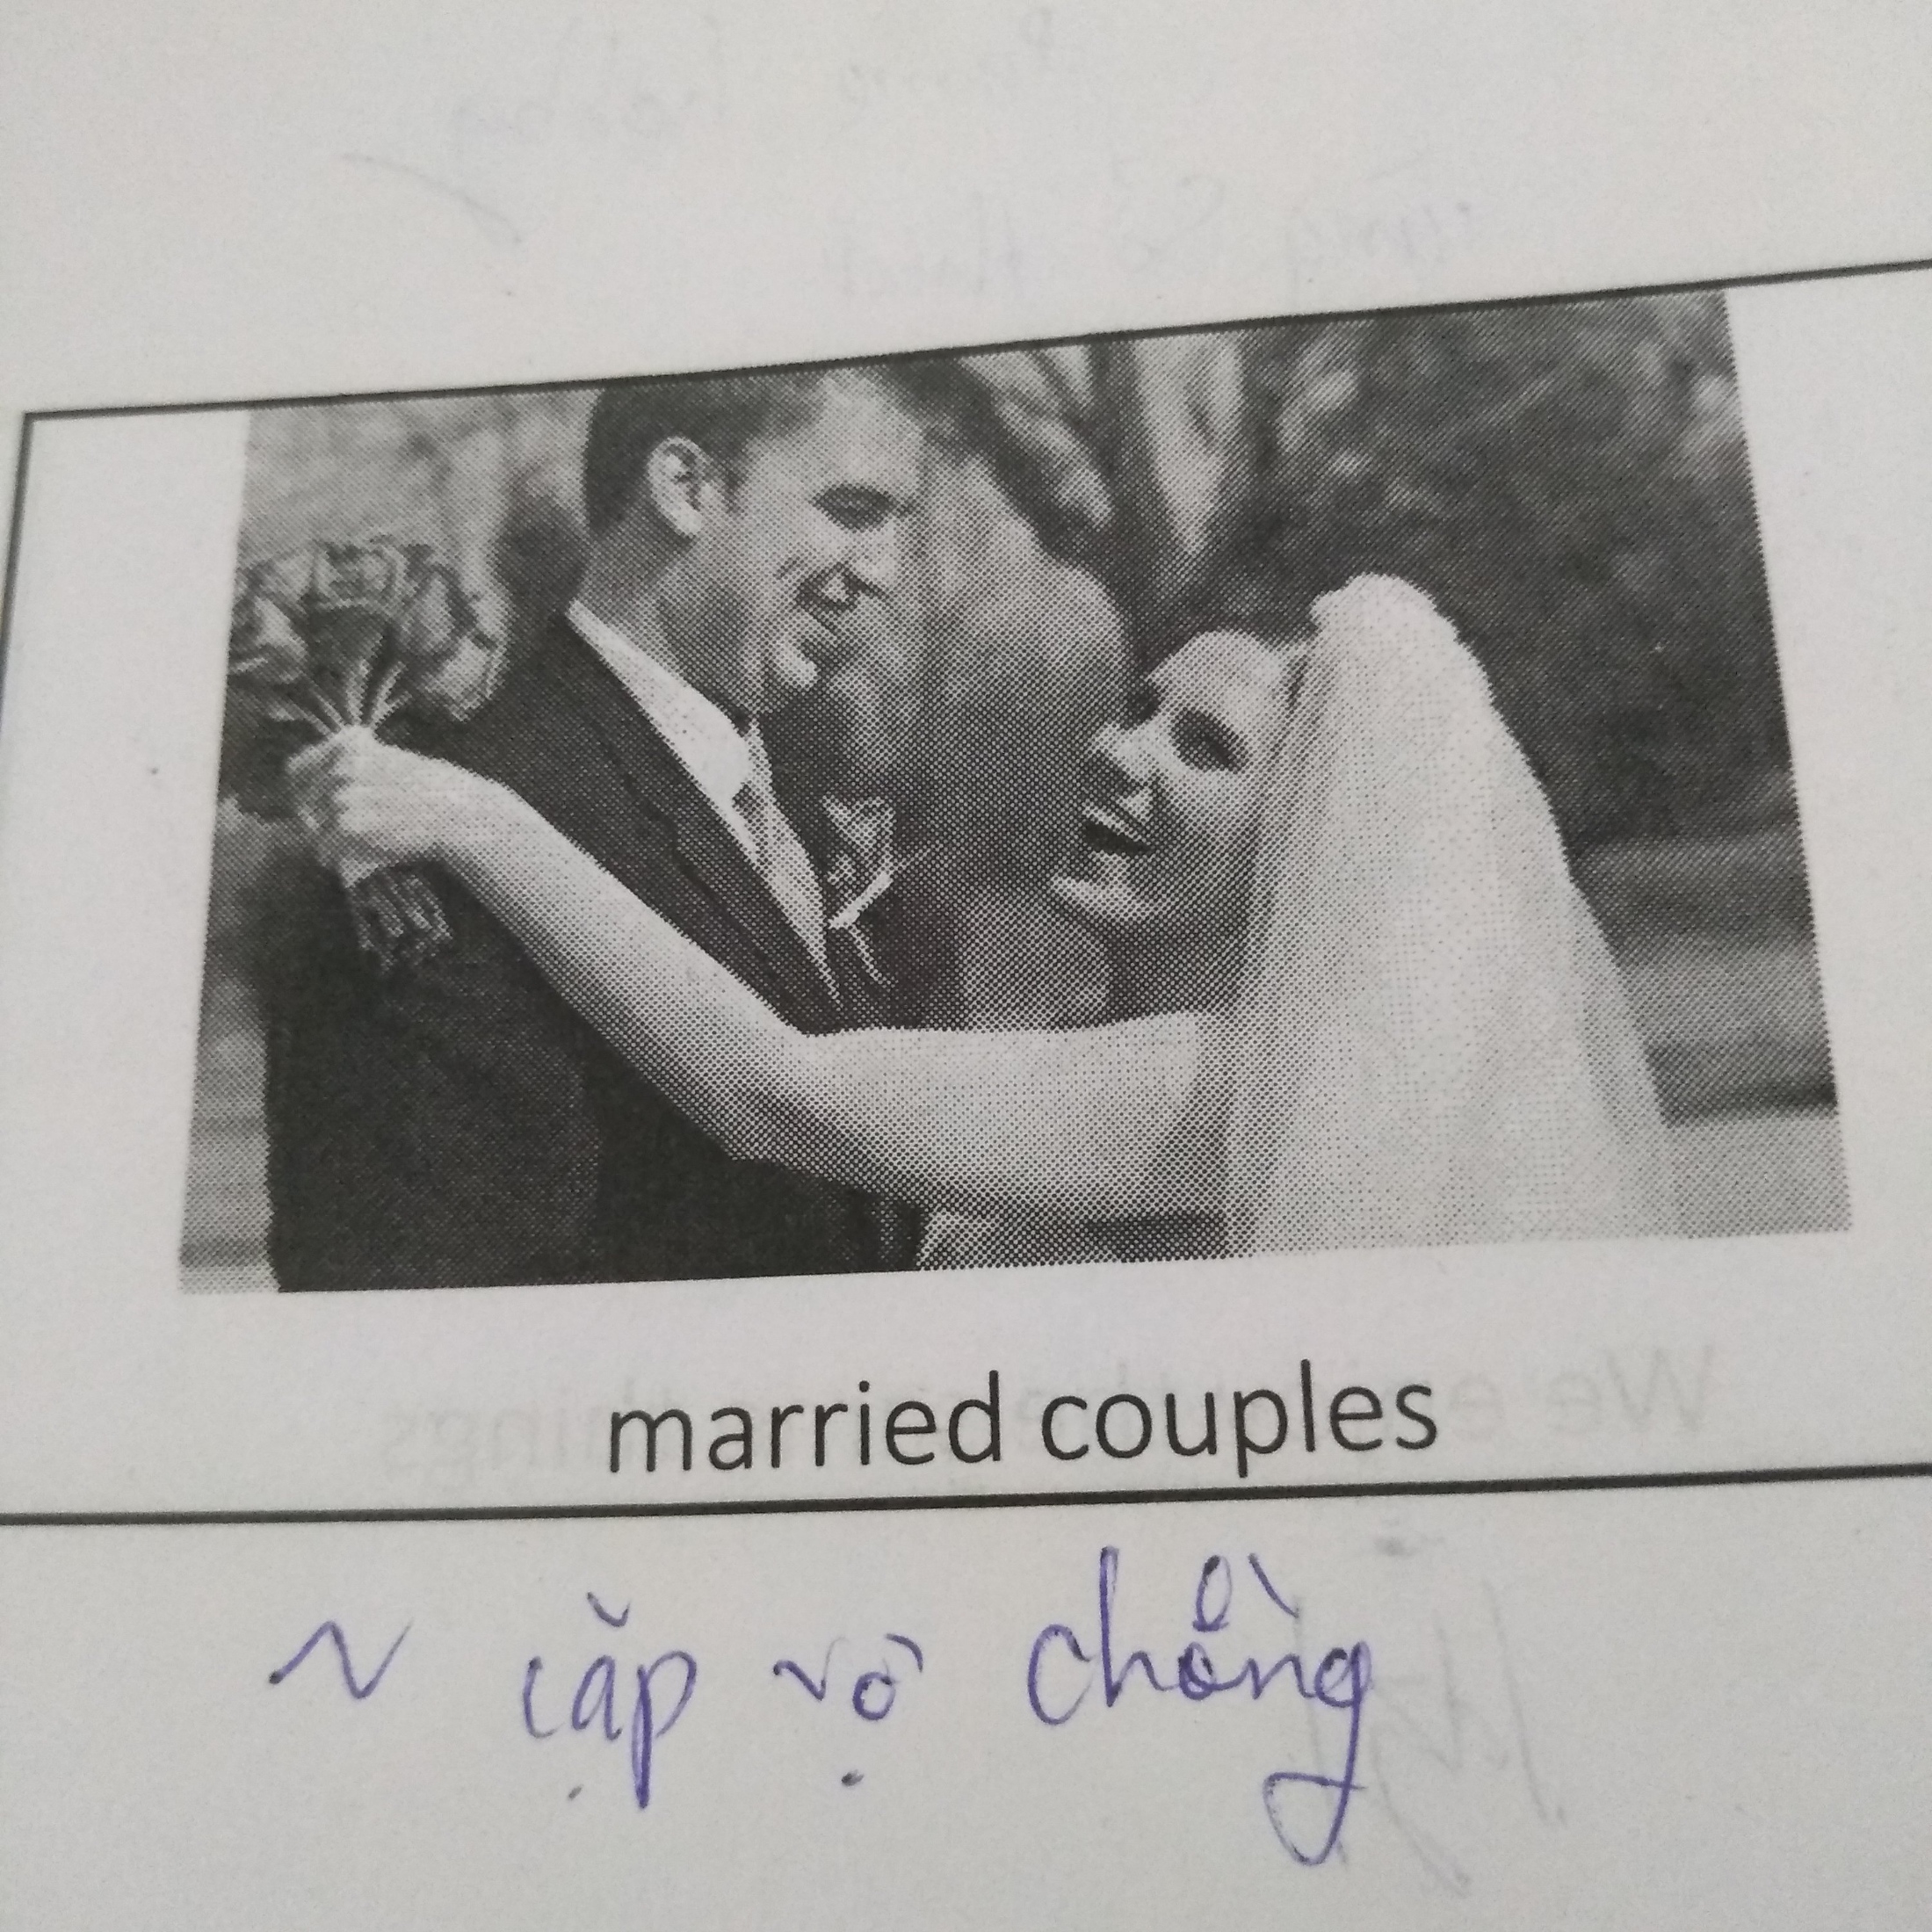 married couples
~ cặp vợ chồng